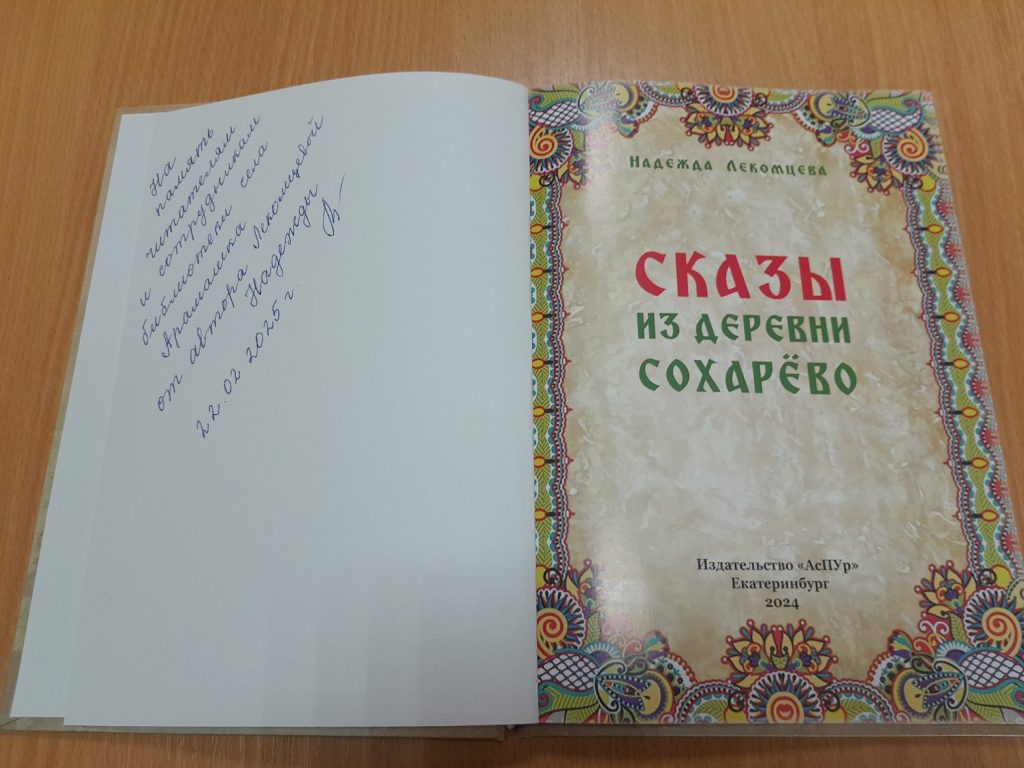 На
память
читателям
и сотрудникам
библиотеки села
Арамашка
от автора Лекомцевой
Надежды
22.02 2025 г.
Надежда Лекомцева
Сказы
из деревни
Сохарёво
Издательство «АсПУр»
Екатеринбург
2024